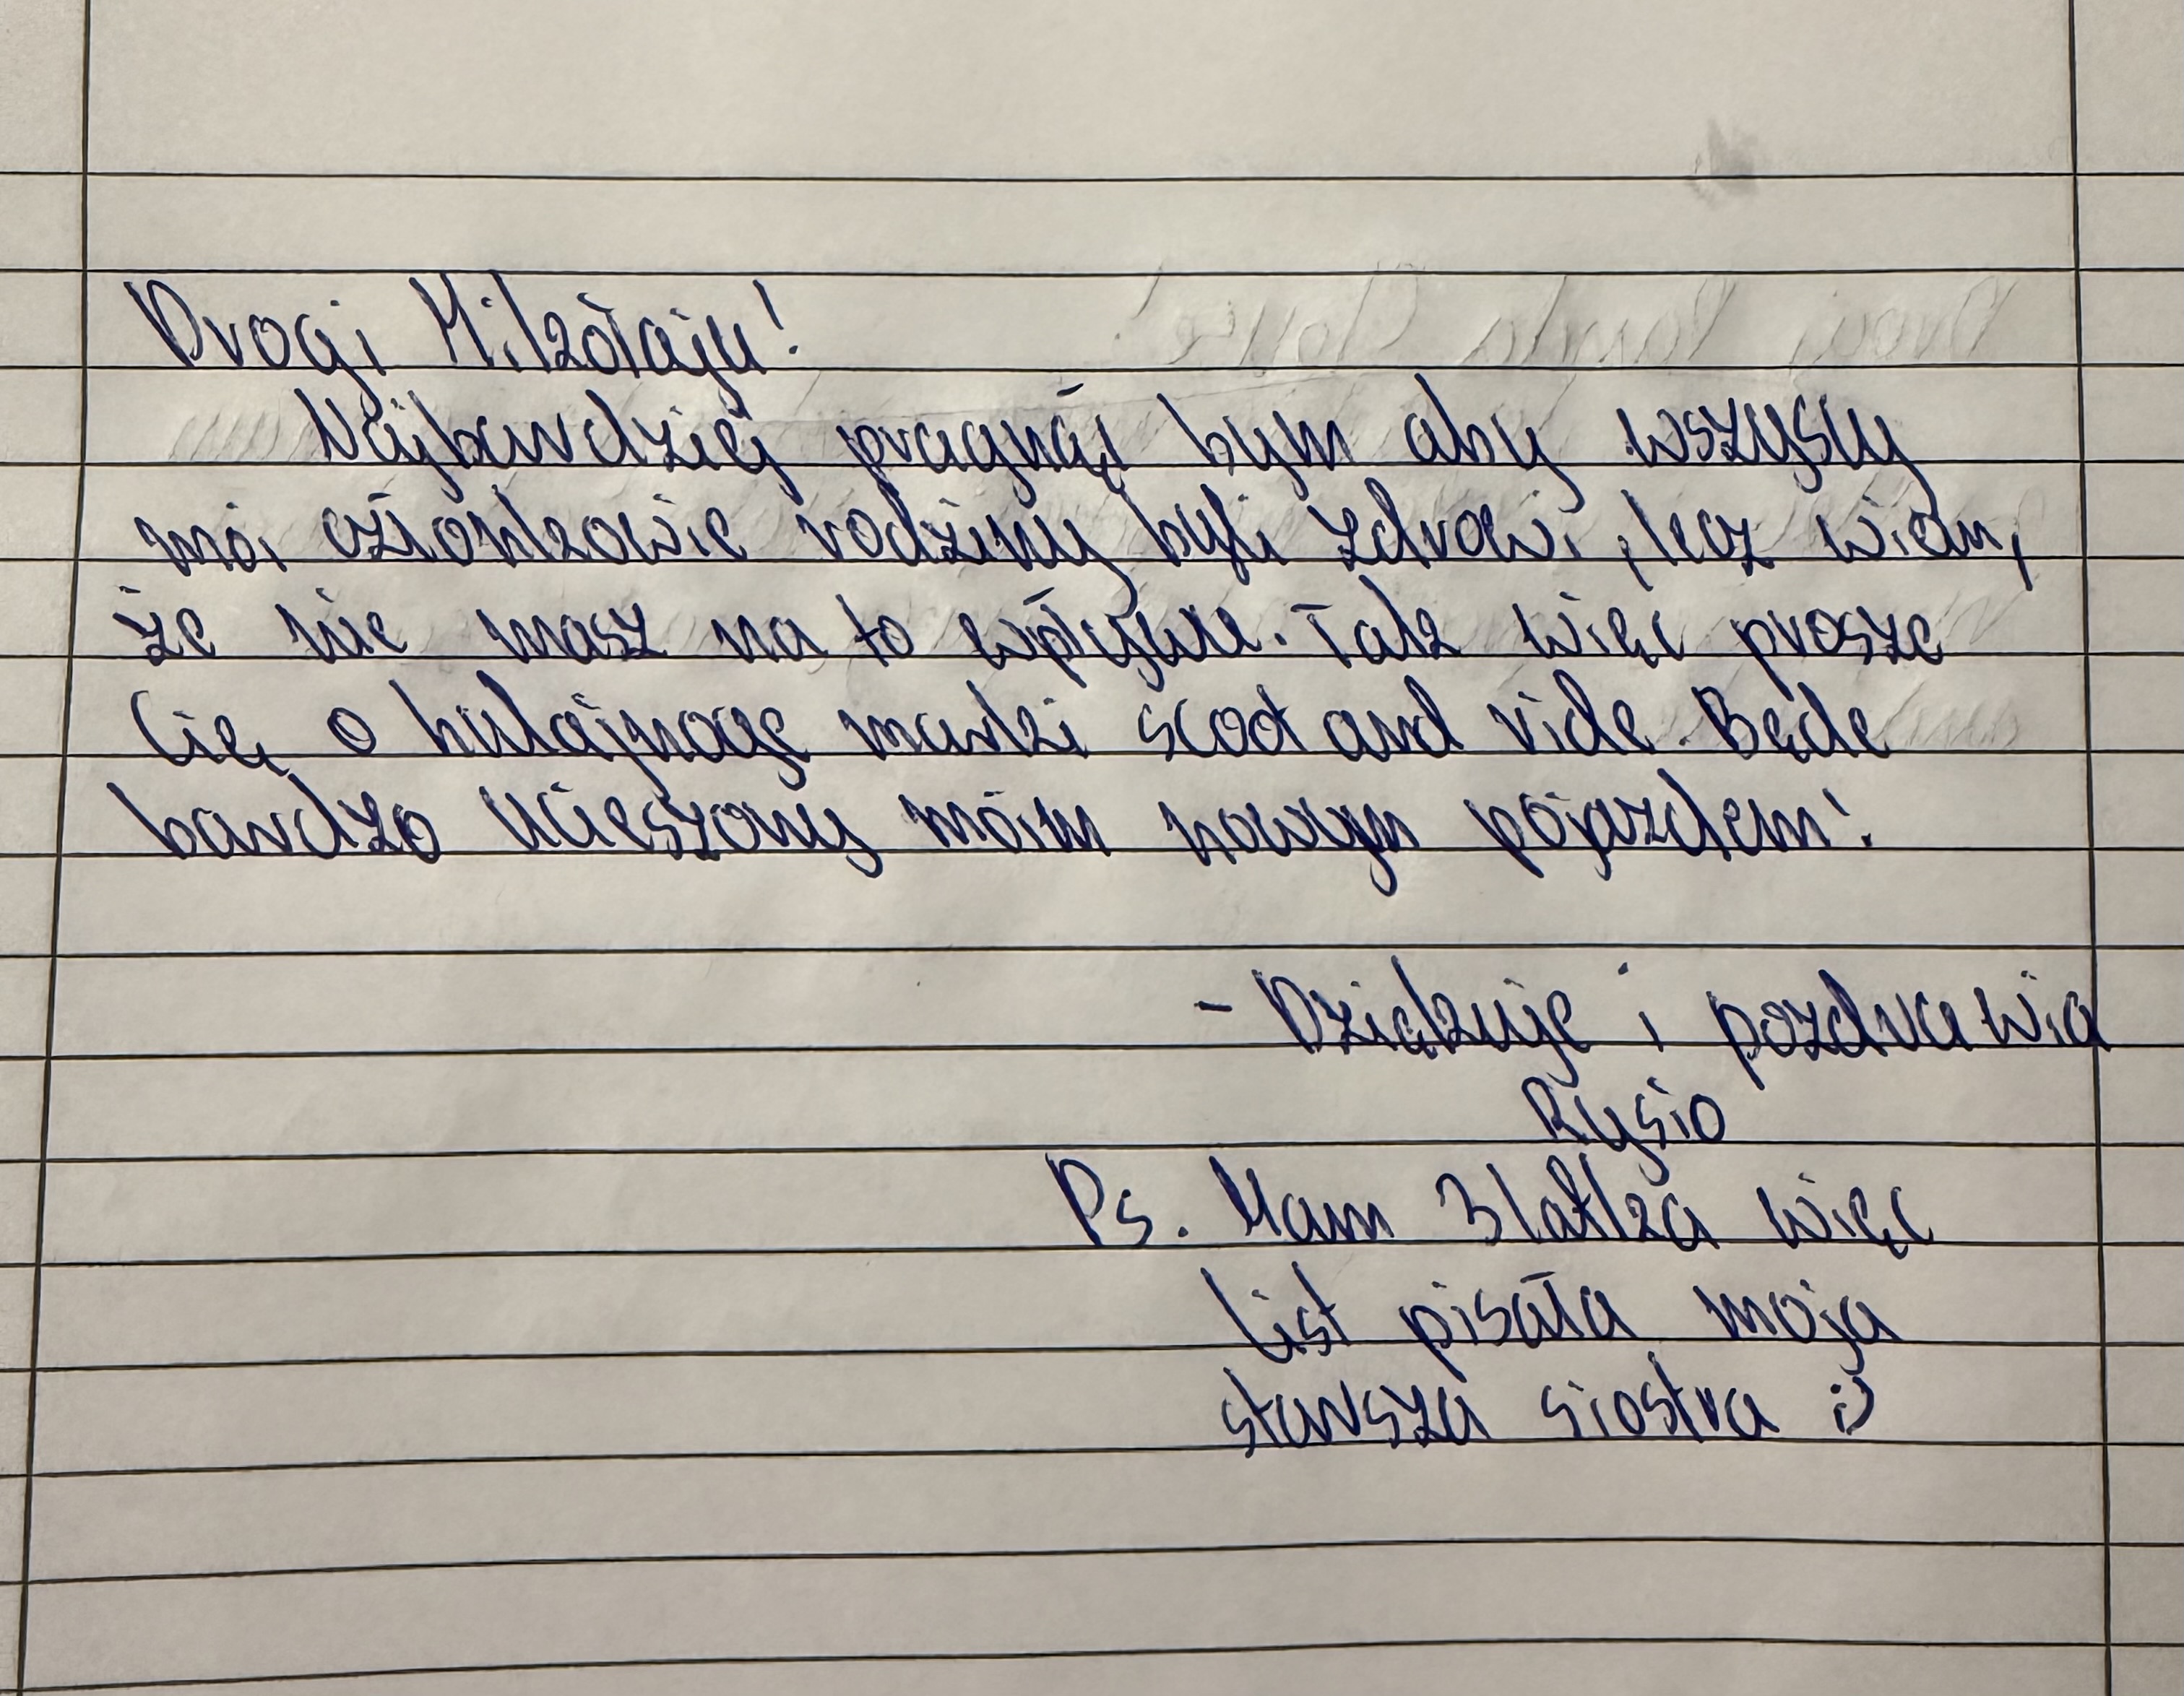 Drogi Mikołaju!
Najbardziej pragnął bym aby wszyscy
moi członkowie rodziny byli zdrowi, lecz wiem,
że nie masz na to wpływu. Tak więc prosze
Cię o hulajnoge marki scoot and ride. Będe
bardzo ucieszony moim nowym pojazdem!
- Dziękuje i pozdrawia
Rysio
Ps. Mam 3 latka więc
list pisała moja
starsza siostra :)